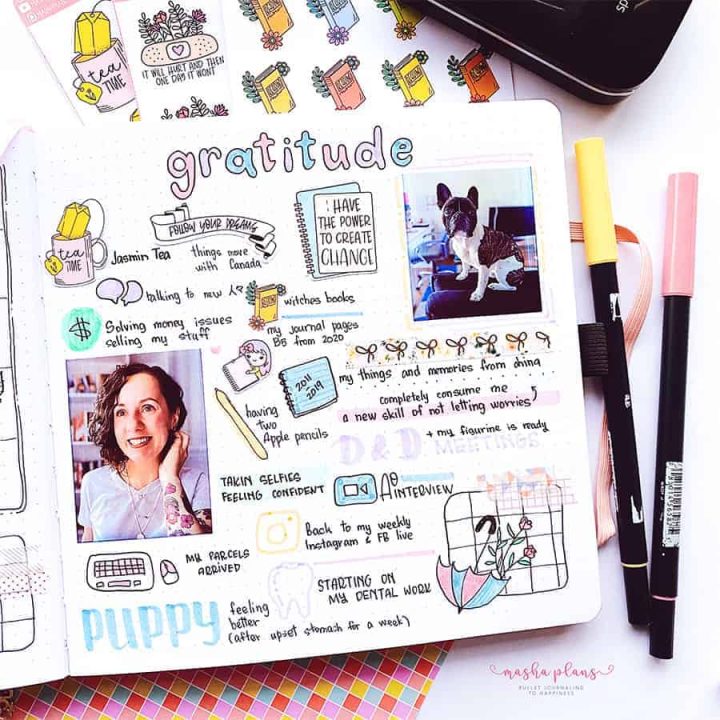 tea
TIME
IT WILL HURT AND THEN
ONE DAY IT WONT
gratitude
tea
TIME
Jasmin Tea
FOLLOW YOUR DREAMS
things move
with Canada
I HAVE
THE POWER
TO CREATE
CHANGE
talking to new
witches books
$
Solving money issues
selling my stuff
my journal pages
BS from 2020
2011
2019
my things and memories from china
having
two
Apple pencils
completely consume me
a new skill of not letting worries
D&D MEETINGS
+ my figurine is ready
TAKIN SELFIES
FEELING CONFIDENT
INTERVIEW
Back to my weekly
Instagram & FB live
MY PARCELS
ARRIVED
STARTING ON
MY DENTAL WORK
PUPPY
feeling
better
(after upset stomach for a week)
masha plans
BULLET JOURNALING
TO HAPPINESS